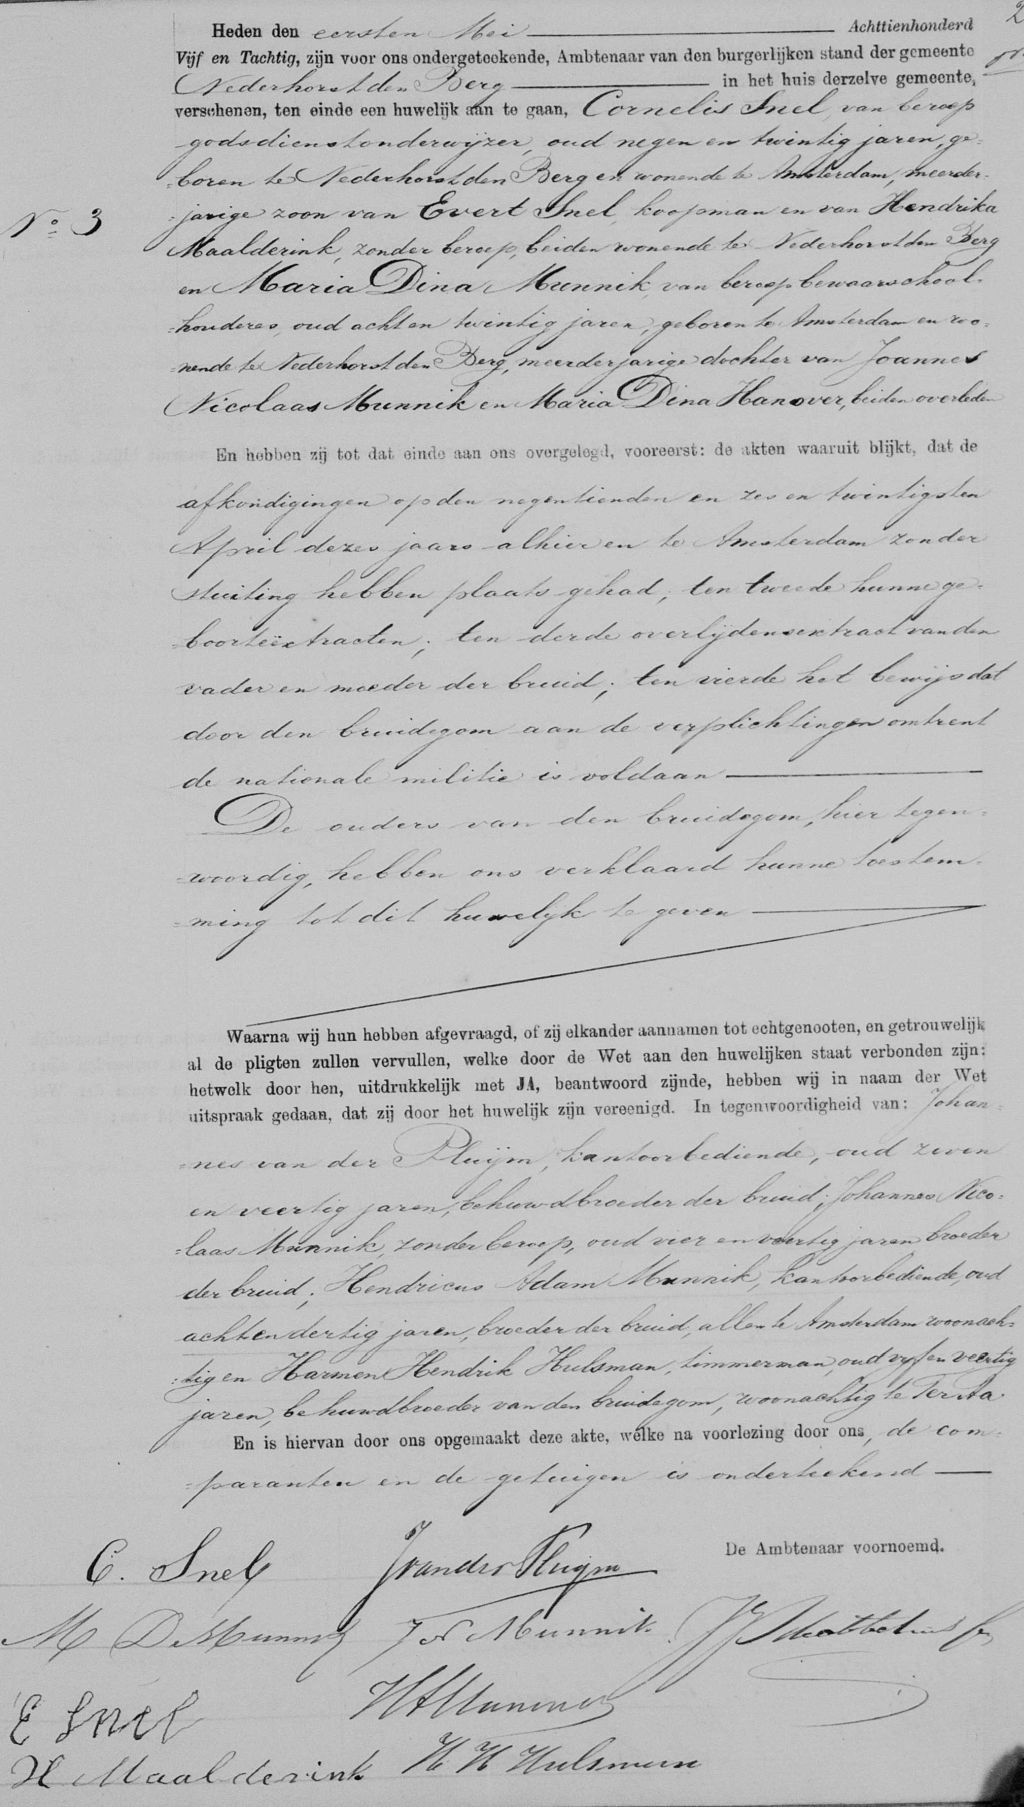 Heden den eersten Mei Achttienhonderd
Vijf en Tachtig, zijn voor ons ondergeteekende, Ambtenaar van den burgerlijken stand der gemeente
Nederhorst den Berg in het huis derzelve gemeente,
verschenen, ten einde een huwelijk aan te gaan, Cornelis Snel, van beroep
godsdienstonderwijzer, oud negen en twintig jaren, ge-
=boren te Nederhorst den Berg en wonende te Amsterdam, meerder-
No 3
=jarige zoon van Evert Snel, koopman en van Hendrika
Maalderink, zonder beroep, beiden wonende te Nederhorst den Berg
en Maria Dina Munnik, van beroep bewaarschool-
=houderes, oud acht en twintig jaren, geboren te Amsterdam en wo-
=nende te Nederhorst den Berg, meerderjarige dochter van Joannes
Nicolaas Munnik en Maria Dina Hanover, beiden overleden
En hebben zij tot dat einde aan ons overgelegd, vooreerst: de akten waaruit blijkt, dat de
afkondigingen op den negentienden en zes en twintigsten
April dezes jaars alhier en te Amsterdam zonder
stuiting hebben plaats gehad; ten tweede hunne ge-
=boorteëxtracten; ten derde overlijdensextract van den
vader en moeder der bruid; ten vierde het bewijs dat
door den bruidegom aan de verplichtingen omtrent
de nationale militie is voldaan
De ouders van den bruidegom, hier tegen-
=woordig, hebben ons verklaard hunne toestem-
=ming tot dit huwelijk te geven
Waarna wij hun hebben afgevraagd, of zij elkander aannamen tot echtgenooten, en getrouwelijk
al de pligten zullen vervullen, welke door de Wet aan den huwelijken staat verbonden zijn:
hetwelk door hen, uitdrukkelijk met JA, beantwoord zijnde, hebben wij in naam der Wet
uitspraak gedaan, dat zij door het huwelijk zijn vereenigd. In tegenwoordigheid van: Johan-
=nes van der Pluijm, kantoorbediende, oud zeven
en veertig jaren, behuwdbroeder der bruid; Johannes Nico-
=laas Munnik, zonder beroep, oud vier en veertig jaren broeder
der bruid; Hendricus Adam Munnik, kantoorbediende, oud
acht en dertig jaren, broeder der bruid, allen te Amsterdam woonach-
=tig en Harmen Hendrik Hulsman, timmerman, oud vyf en veertig
jaren, behuwdbroeder van den bruidegom, woonachtig te Ter Aa.
En is hiervan door ons opgemaakt deze akte, welke na voorlezing door ons, de com-
=paranten en de getuigen is onderteekend
De Ambtenaar voornoemd.
C. Snel J van der Pluijm
M D Munnik J N Munnik
E Snel H A Munnik
H Maalderink H H Hulsman